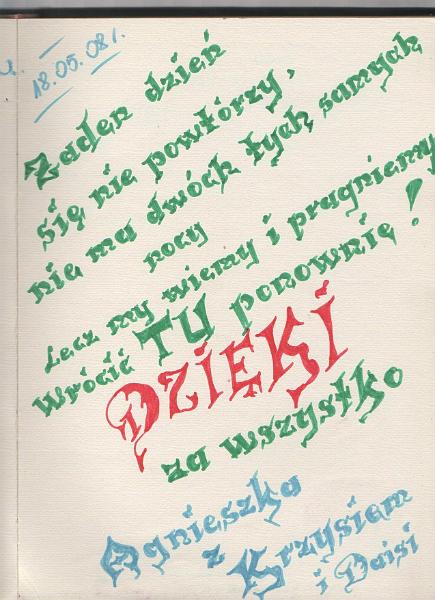 18.05.08r.
Żaden dzień
się nie powtórzy,
nie ma dwóch tych samych
nocy
Lecz my wiemy i pragniemy
Wrócić TU ponownie!
DZIĘKI
za wszystko
Agnieszka
z Krzysiem
i Daisi